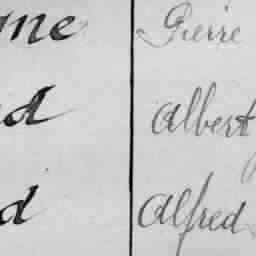 me Pierre
d Albert
d Alfred